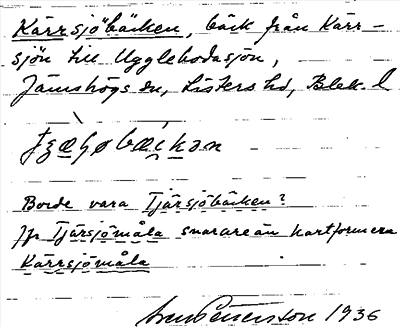 Kärrsjöbäcken, bäck från Kärr-
sjön till Ugglebodasjön,
Jämshögs sn, Listers hd, Blek. l
Borde vara Tjärsjöbäcken?
Jfr Tjärsjömåla snarare än kartformen
Kärrsjömåla
Petterson 1936